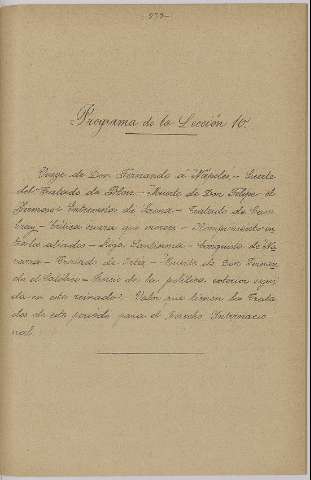 Programa de la Lección 16.
Viage de Don Fernando a Nápoles — Secreta
del Tratado de Blois — Muerte de Don Felipe el
Hermoso — Entrevista de Savona — Tratado de Cam
bray — Crítica que merece — Rompimiento en
tre los aliados — Liga Santísima — Conquista de Na
varra — Tratado de — Muerte de Don Fernan
do el Católico — Juicio de la política exterior segui
da en este reinado. Valor que tienen los Trata
dos de este periodo para el Derecho Internacio
nal.